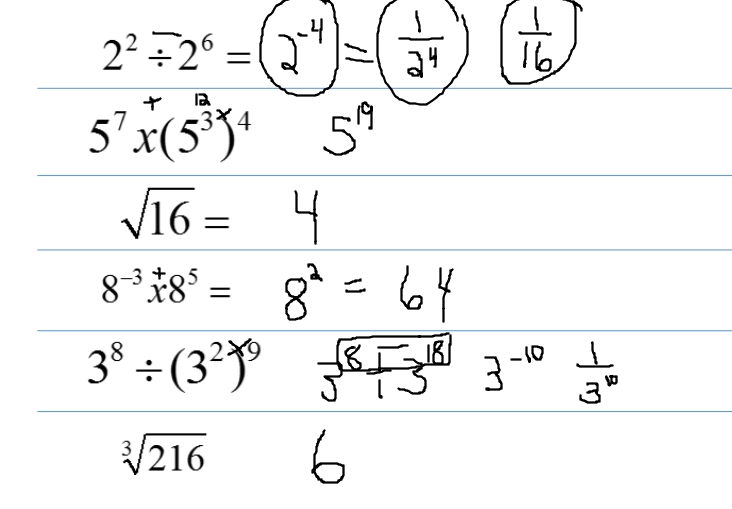 2² ÷ 2⁶ = 2⁻⁴ = 1/2⁴ 1/16
5⁷ x(5³)⁴ + 12 x 5¹⁹
√16 = 4
8⁻³ x8⁵ = + 8² = 64
3⁸ ÷ (3²)⁹ x 3⁸ ÷ 3¹⁸ 3⁻¹⁰ 1/3¹⁰
∛216 6